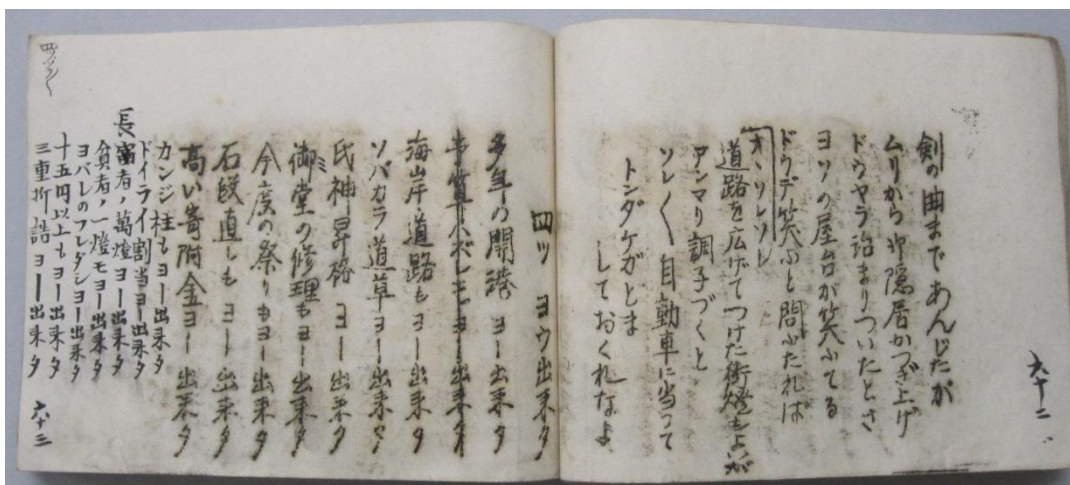 六十二
剣の曲まであんじたが
ムリから御隠居かつぎ上げ
ドウヤラ治まりついたとさ
ヨソの屋台が笑ふてる
ドウデ笑ふと問ふたれば
オーソレソレ
道路を広げてつけた街燈もよいが
アンマリ調子づくと
ソレ〱自動車に当って
トンダケガとま
しておくれなよ
四ツ ヨウ出来タ
多年の開港ヨー出来タ
海岸道路もヨー出来タ
ソバカラ道草ヨー出来タ
氏神昇格ヨー出来タ
御堂の修理もヨー出来タ
今度の祭りもヨー出来タ
石段直しもヨー出来タ
高い寄附金ヨー出来タ
カンジ柱もヨー出来タ
ドイライ割当ヨー出来タ
長者ノ萬燈ヨー出来タ
貧者ノ一燈モヨー出来タ
ヨバレのフレダシヨー出来タ
十五円以上もヨー出来タ
三重折詰ヨー出来タ
六十三